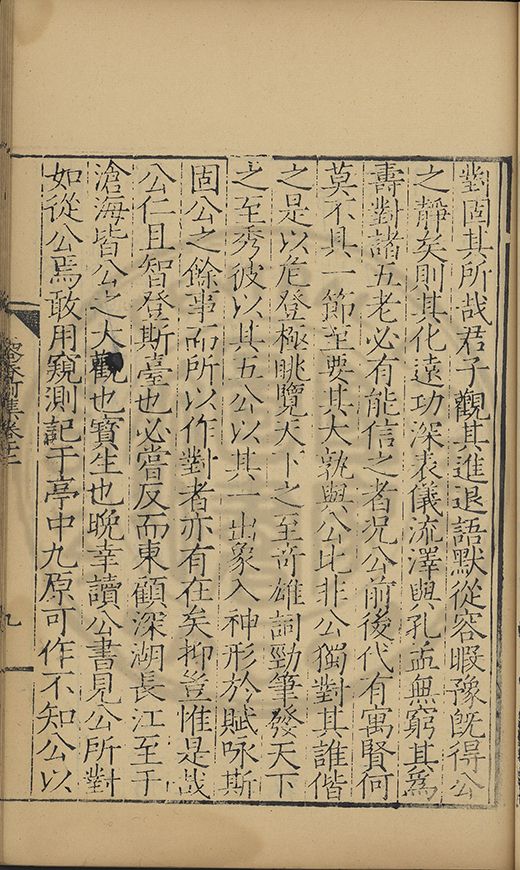 對固其所哉君子觀其進退語默從容暇豫旣得公
之靜矣則其化遠功深表儀流澤與孔孟無窮其爲
壽對諸五老必有能信之者况公前後代有寓賢何
莫不具一節至要其大孰與公比非公獨對其誰偕
之是以危登極眺覽天下之至奇雄詞勁筆發天下
之至秀彼以其五公以其一出象入神形於賦咏斯
固公之餘事而所以作對者亦有在矣抑豈惟是哉
公仁且智登斯臺也必嘗反而東顧深湖長江至于
滄海皆公之大觀也寳生也晚幸讀公書見公所對
如從公焉敢用窺測記于亭中九原可作不知公以
容春所集卷十二
九